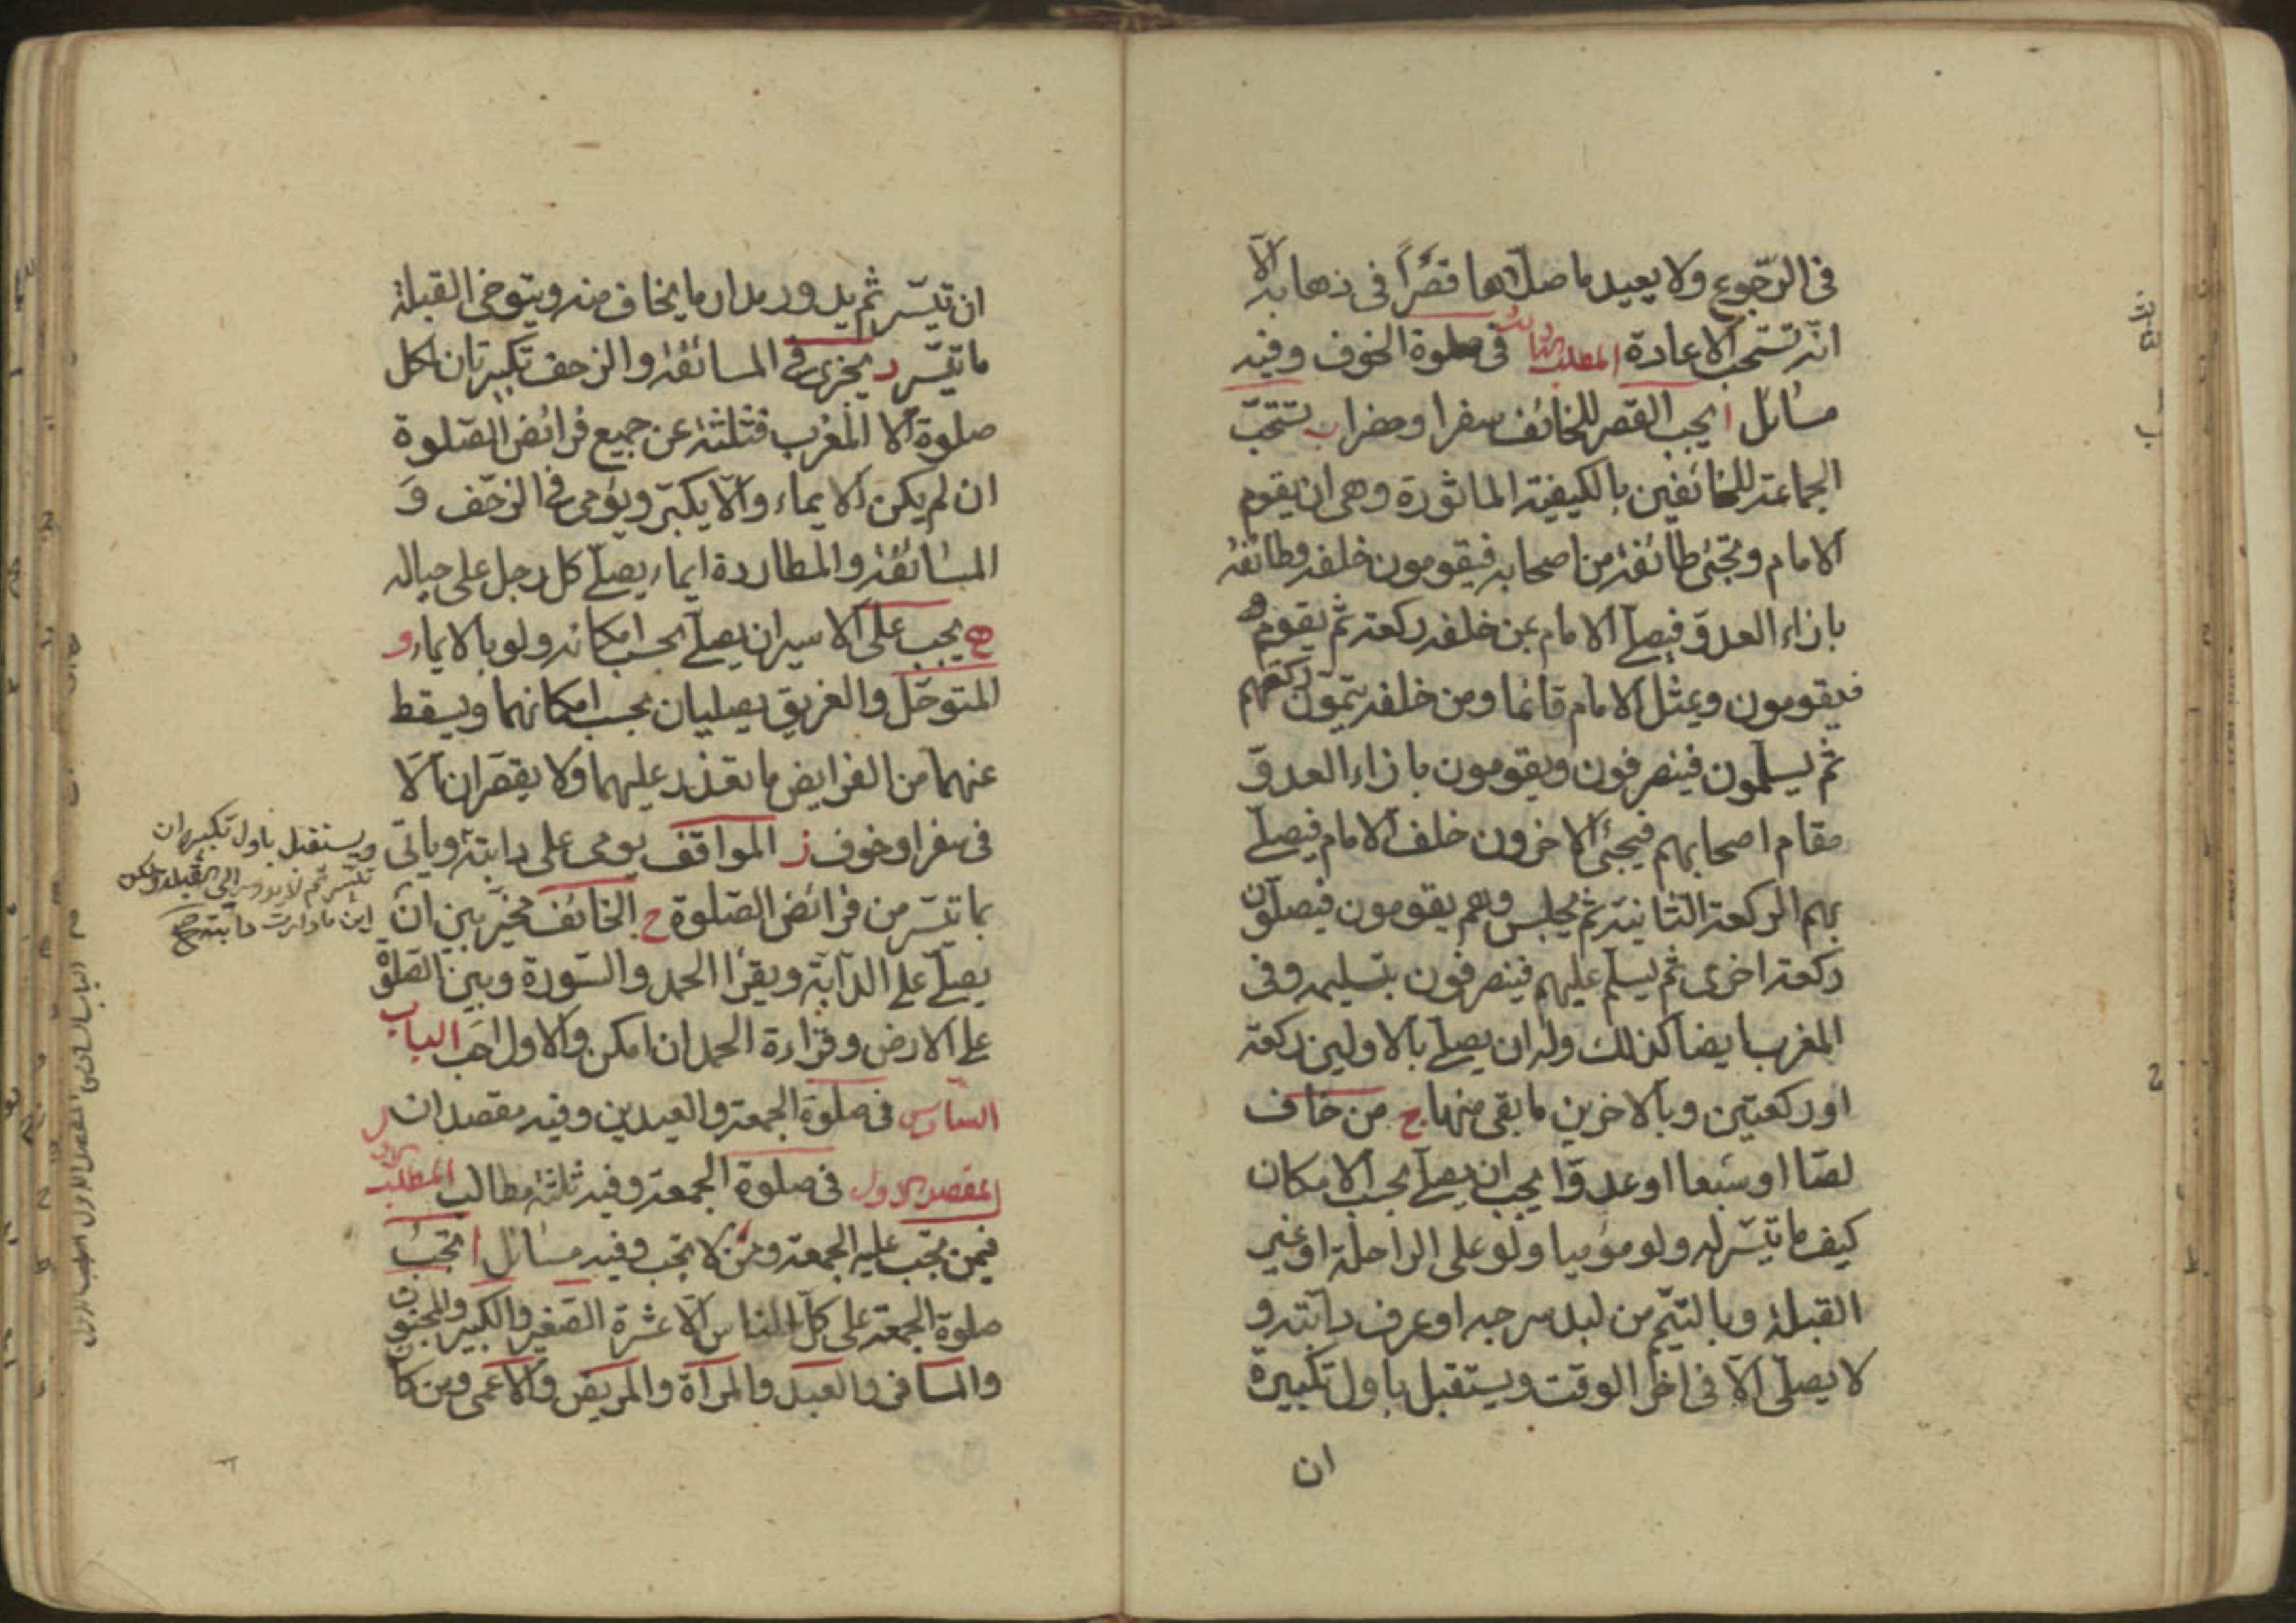 في الرّجوع ولا يعيد ما صلّاها قصرًا في ذهابه الّا
انّه تستحب الاعادة المطلب الثالث في صلوة الخوف وفيه
مسائل ا يجب القصر للخائف سفرا وحضرا ب تستحبّ
الجماعة للخائفين بالكيفية الماثورة وهي ان يقوم
الامام وتجئ طائفة من اصحابه فيقومون خلفه وطائفة
بازاء العدوّ فيصلّي الامام بمن خلفه ركعة ثم يقوم
فيقومون ويمثل الامام قائما ومن خلفه يتمّون ركعتهم
ثم يسلّمون فينصرفون ويقومون بازاء العدوّ
مقام اصحابهم فيجئ الاخرون خلف الامام فيصلّي
بهم الركعة الثانية ثم يجلس وهم يقومون فيصلّون
ركعة اخرى ثم يسلّم عليهم فينصرفون بتسليمه وفي
المغرب ايضا كذلك وله ان يصلّي بالاولين ركعة
او ركعتين وبالاخرين ما بقي منها ج من خاف
لصّا او سبعا او عدوّا يجب ان يصلّي بحسب الامكان
كيف ما تيسّر له ولو موميا ولو على الراحلة او غير
القبلة وبالتيمّم من لبد سرجه او عرف دابّته و
لا يصلّي الّا في اخر الوقت ويستقبل باول تكبيرة
ان
ان تيسّر ثم يدور مدار ما يخاف منه ويتوخى القبلة
ما تيسّر د يجزي في المسائفة والزحف تكبيرتان لكل
صلوة الا المغرب فثلثة عن جميع فرائض الصّلوة
ان لم يكن الايماء والّا يكبّر ويؤمي في الزحف و
المسائفة والمطاردة ايماء يصلّي كل رجل على حياله
ه يجب على الاسير ان يصلّي بحسب امكانه ولو بالايماء و
المتوحّل والغريق يصليان بحسب امكانهما ويسقط
عنهما من الفرايض ما تعذر عليهما ولا يقصران الّا
في سفر او خوف ز المواقف يومي على دابته وياتي
بما تيسّر من فرائض الصّلوة ح الخائف مخيّر بين ان
يصلّي على الدابّة ويقرا الحمد والسّورة وبين الصلوة
على الارض وقراءة الحمد ان امكن والاول احب الباب
السادس في صلوة الجمعة والعيدين وفيه مقصدان
المقصد الاول في صلوة الجمعة وفيه ثلثة مطالب المطلب الاول
فيمن تجب عليه الجمعة ومن لا تجب وفيه مسائل ا تجب
صلوة الجمعة على كلّ الناس الّا عشرة الصّغير والكبير والمجنون
والمسافر والعبد والمرآة والمريض والاعمى ومن كا
ويستقبل باول تكبير ان
تيسّر ثم لا يدور الى القبلة ولكن
اين ما دارت دابته صح